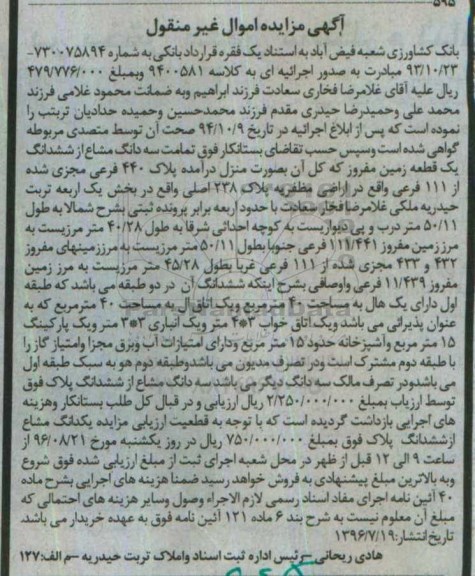 ۵۹۵
آگهی مزایده اموال غیر منقول
بانک کشاورزی شعبه فیض آباد به استناد یک فقره قرارداد بانکی به شماره ۷۳۰۰۷۵۸۹۴-
۹۳/۱۰/۲۳ مبادرت به صدور اجرائیه ای به کلاسه ۹۴۰۰۵۸۱ وبمبلغ ۴۷۹/۷۷۶/۰۰۰
ریال علیه آقای غلامرضا فخاری سعادت فرزند ابراهیم وبه ضمانت محمود غلامی فرزند
محمد علی وحمیدرضا حیدری مقدم فرزند محمدحسین وحمیده حدادیان تربتب را
نموده است که پس از ابلاغ اجرائیه در تاریخ ۹۴/۱۰/۹ صحت آن توسط متصدی مربوطه
گواهی شده است وسپس حسب تقاضای بستانکار فوق تمامت سه دانگ مشاع از ششدانگ
یک قطعه زمین مفروز که کل آن بصورت منزل درآمده پلاک ۴۴۰ فرعی مجزی شده
از ۱۱۱ فرعی واقع در اراضی مظفریه پلاک ۲۳۸ اصلی واقع در بخش یک اربعه تربت
حیدریه ملکی غلامرضا فخار سعادت با حدود اربعه برابر پرونده ثبتی بشرح شمالا به طول
۵۰/۱۱ متر درب و پی دیواریست به کوچه احداثی شرقا به طول ۴۰/۲۸ متر مرزیست به
مرز زمین مفروز ۱۱۱/۴۴۱ فرعی جنوبا بطول ۵۰/۱۱ متر مرزیست به مرززمینهای مفروز
۴۳۲ و ۴۳۳ مجزی شده از ۱۱۱ فرعی غربا بطول ۴۵/۲۸ متر مرزیست به مرز زمین
مفروز ۱۱/۴۳۹ فرعی واوصافی بشرح اینکه ششدانگ آن در دو طبقه می باشد که طبقه
اول دارای یک هال به مساحت ۴۰ متر مربع ویک اتاق ال به مساحت ۴۰ مترمربع که به
عنوان پذیرائی می باشد ویک اتاق خواب ۳*۴ متر ویک انباری ۳*۳ متر ویک پارکینگ
۱۵ متر مربع واشپزخانه حدود ۱۵ متر مربع ودارای امتیازات آب وبرق مجزا وامتیاز گاز را
با طبقه دوم مشترک است ودر تصرف مدیون می باشدوطبقه دوم هو به سبک طبقه اول
می باشدودر تصرف مالک سه دانگ دیگر می باشد سه دانگ مشاع از ششدانگ پلاک فوق
توسط ارزیاب بمبلغ ۲/۲۵۰/۰۰۰/۰۰۰ ریال ارزیابی و در قبال کل طلب بستانکار وهزینه
های اجرایی بازداشت گردیده است که با توجه به قطعیت ارزیابی مزایده یکدانگ مشاع
ازششدانگ پلاک فوق بمبلغ ۷۵۰/۰۰۰/۰۰۰ ریال در روز یکشنبه مورخ ۹۶/۰۸/۲۱ از
ساعت ۹ الی ۱۲ قبل از ظهر در محل شعبه اجرای ثبت از مبلغ ارزیابی شده فوق شروع
وبه بالاترین مبلغ پیشنهادی به فروش خواهد رسید ضمنا هزینه های اجرایی بشرح ماده
۴۰ آئین نامه اجرای مفاد اسناد رسمی لازم الاجراء وصول وسایر هزینه های احتمالی که
مبلغ آن معلوم نیست به شرح بند ۶ ماده ۱۲۱ آئین نامه فوق به عهده خریدار می باشد.
تاریخ انتشار: ۱۳۹۶/۷/۱۹
هادی ریحانی – رئیس اداره ثبت اسناد واملاک تربت حیدریه – م الف: ۱۲۷